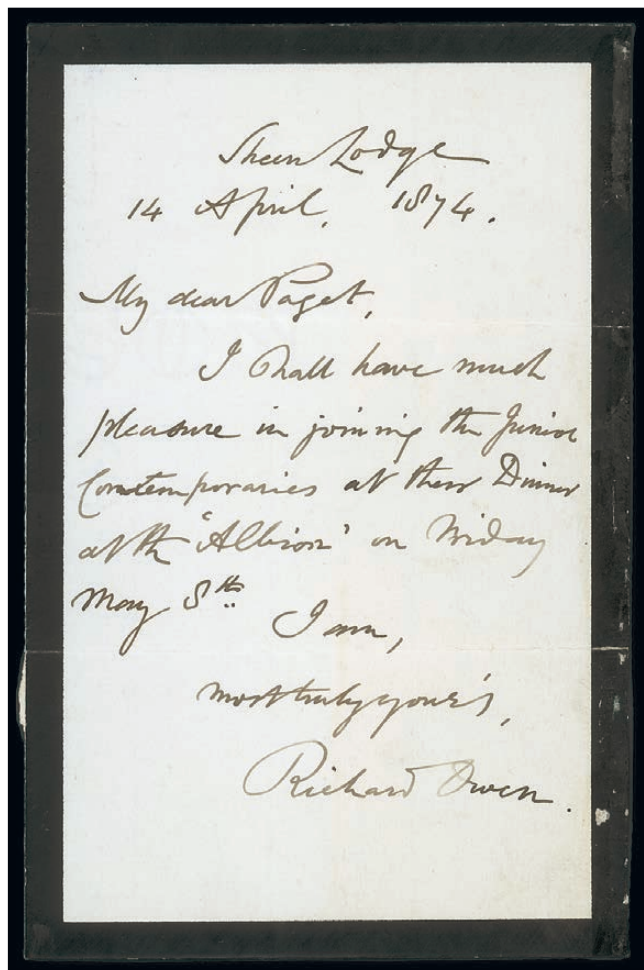 Sheen Lodge
14 April. 1874.
My dear Paget,
I shall have much
pleasure in joining the Junior
Contemporaries at their Dinner
at the 'Albion' on Friday
May 8th.
I am,
most truly your's,
Richard Owen.